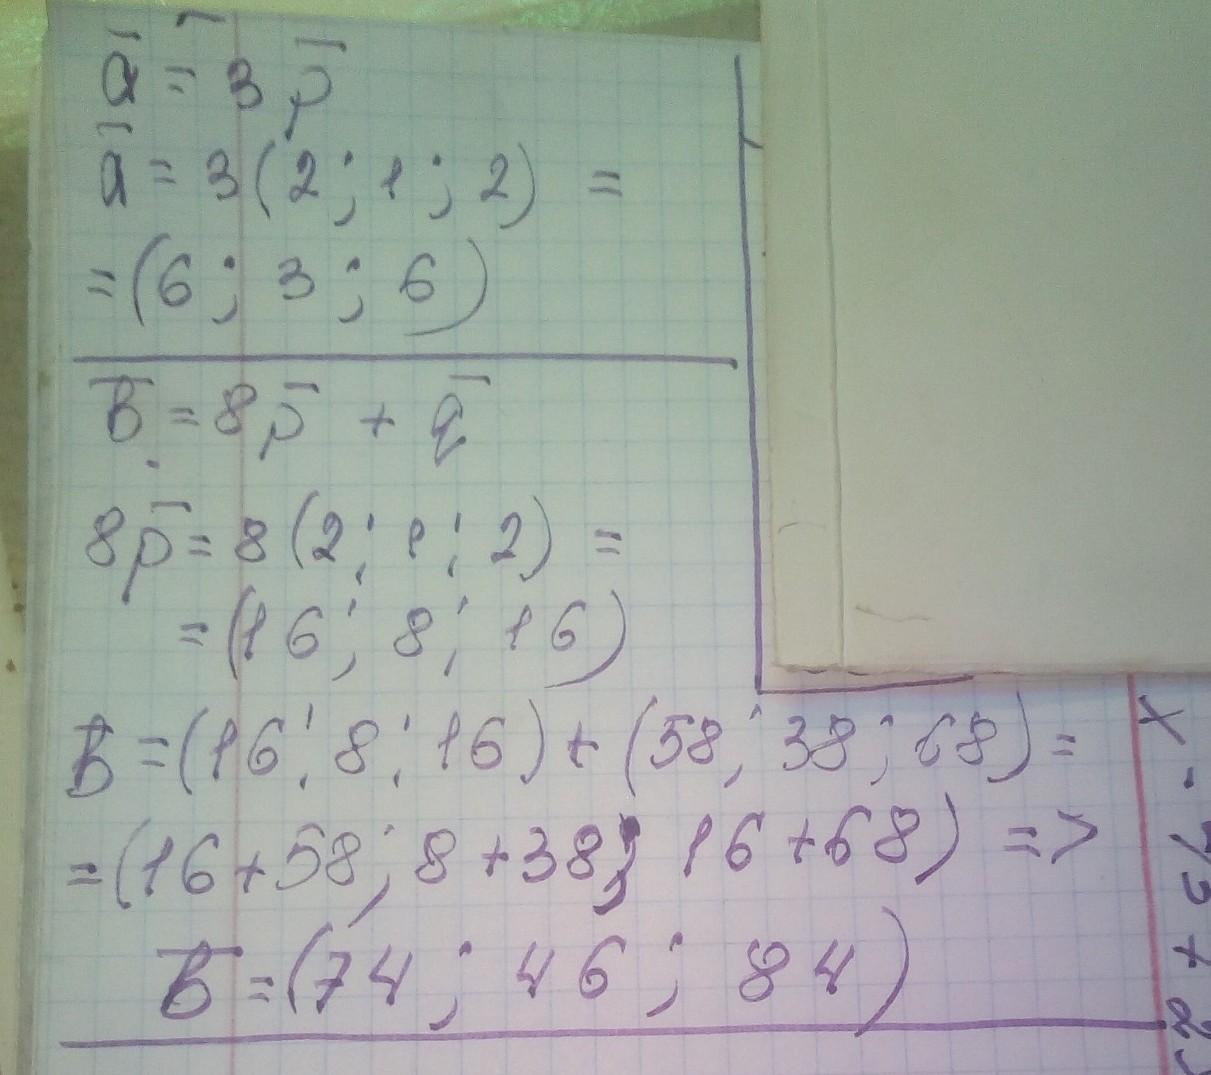 ā = 3p̄
ā = 3(2; 1; 2) =
= (6; 3; 6)
B̄ = 8p̄ + q̄
8p̄ = 8(2; 1; 2) =
= (16; 8; 16)
B̄ = (16; 8; 16) + (58; 38; 68) =
= (16+58; 8+38; 16+68) =>
B̄ = (74; 46; 84)